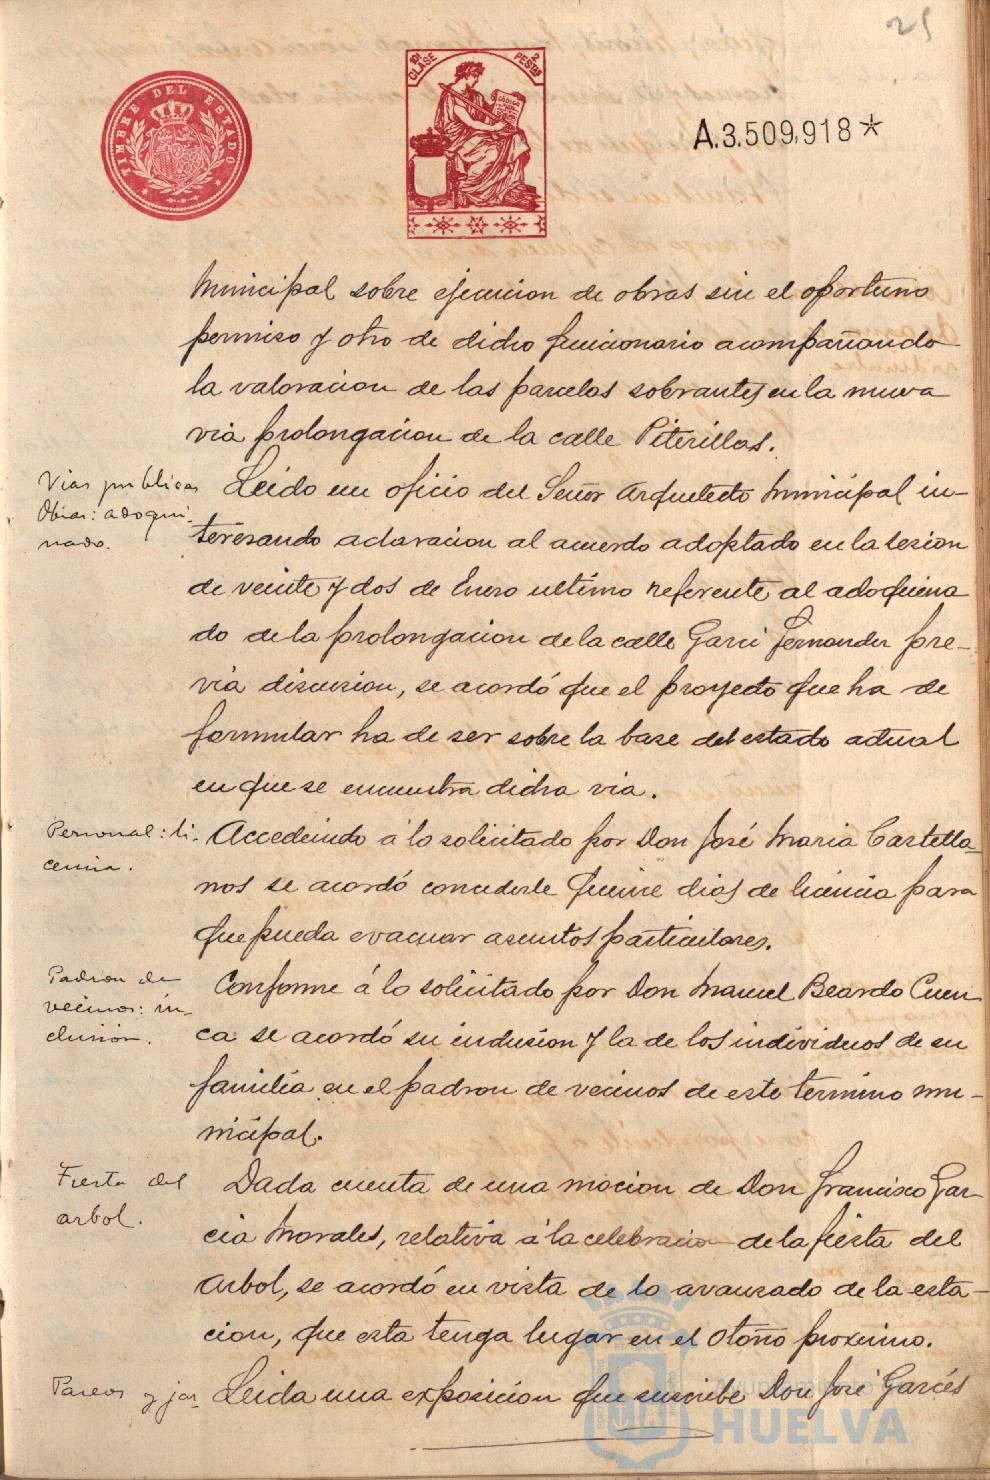 25
TIMBRE DEL ESTADO
10ª CLASE
2 PESTAS
A.3.509.918*
Municipal sobre ejecucion de obras sin el oportuno
permiso y otro de dicho funcionario acompañando
la valoracion de las parcelas sobrantes en la nueva
via prolongacion de la calle Piterillas.
Vias publicas
Obras: adoqui-
nado.
Leido un oficio del Señor Arquitecto Municipal in-
teresando aclaracion al acuerdo adoptado en la sesion
de veinte y dos de Enero ultimo referente al adoquina
do de la prolongacion de la calle Garci Fernandez pre-
via discusion, se acordó que el proyecto que ha de
formular ha de ser sobre la base del estado actual
en que se encuentra dicha via.
Personal: li-
cencia.
Accediendo á lo solicitado por Don José Maria Castella-
nos se acordó concederle quince dias de licencia para
que pueda evacuar asuntos particulares.
Padron de
vecinos: in-
clusión.
Conforme á lo solicitado por Don Manuel Beardo Cuen
ca se acordó su inclusion y la de los individuos de su
familia en el padron de vecinos de este termino mu-
nicipal.
Fiesta del
arbol.
Dada cuenta de una mocion de Don Francisco Gar-
cia Morales, relativa á la celebracion de la fiesta del
Arbol, se acordó en vista de lo avanzado de la esta-
cion, que esta tenga lugar en el Otoño proximo.
Paseos y jar
Leida una exposicion que suscribe Don José Garcés
Ayuntamiento
HUELVA